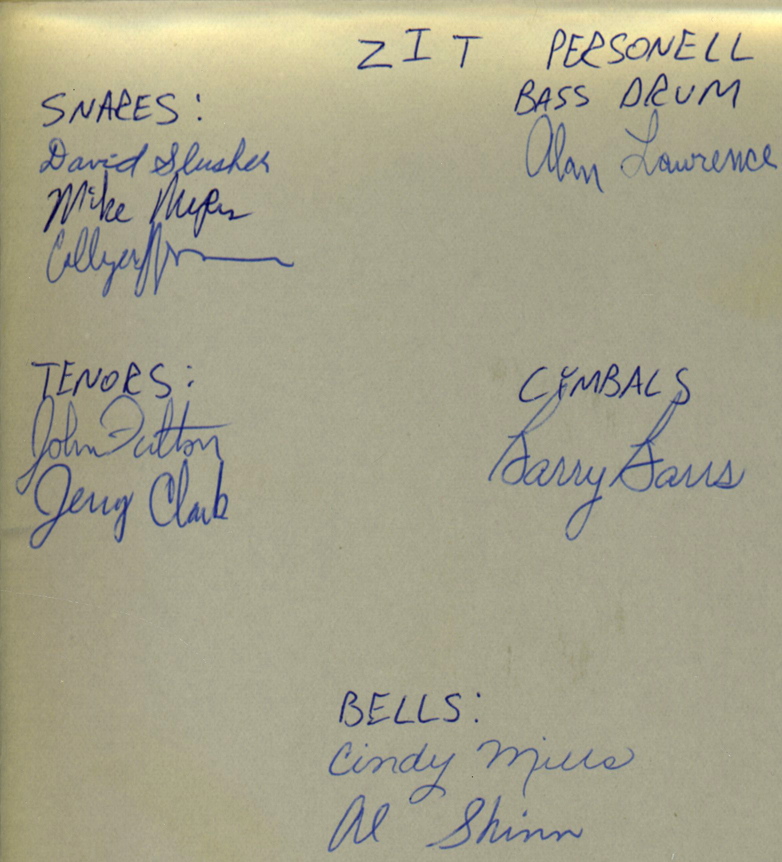 ZIT PERSONELL
SNARES:
David Slusher
Mike Myers
Collyer
BASS DRUM
Alan Lawrence
TENORS:
John Fulton
Jerry Clark
CYMBALS
Barry Barrs
BELLS:
Cindy Mills
Al Shinn